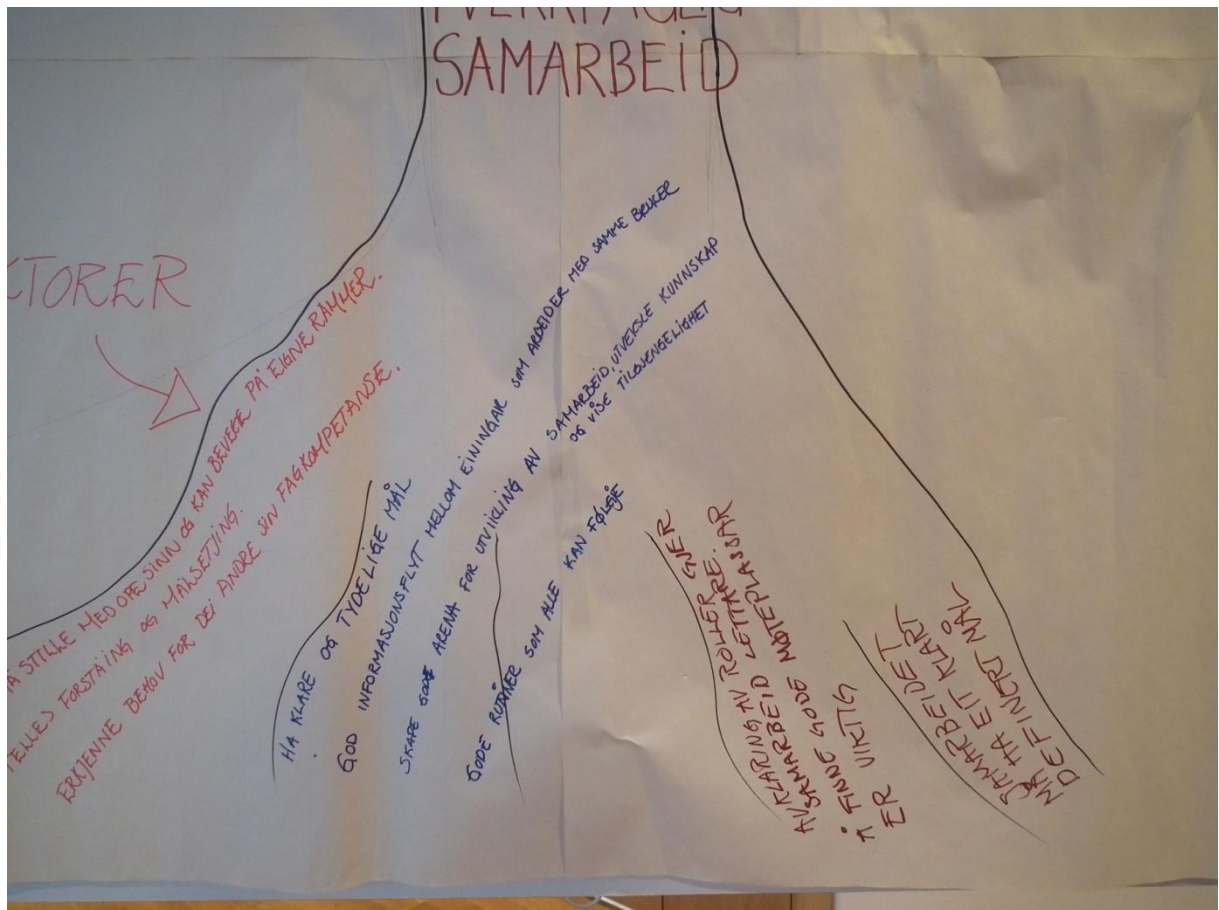 SAMARBEID
KTORER
MÅ STILLE MED OPE SINN OG KAN BEVEGE PÅ EIGNE RAMMER.
FELLES FORSTÅING OG MÅLSETJING.
ERKJENNE BEHOV FOR DEI ANDRE SIN FAGKOMPETANSE.
HA KLARE OG TYDELIGE MÅL
GOD INFORMASJONSFLYT MELLOM EININGAR SOM ARBEIDER MED SAMME BRUKER
SKAPE GODE ARENA FOR UTVIKLING AV SAMARBEID, UTVEKSLE KUNNSKAP
OG VISE TILGJENGELIGHET
GODE RUTINER SOM ALLE KAN FØLGJE
AVKLARING AV ROLLER GJER
SAMARBEID LETTARE.
Å FINNE GODE MØTEPLASSAR
ER VIKTIG
SAMARBEIDET
MÅ HA EIT KLART
DEFINERT MÅL